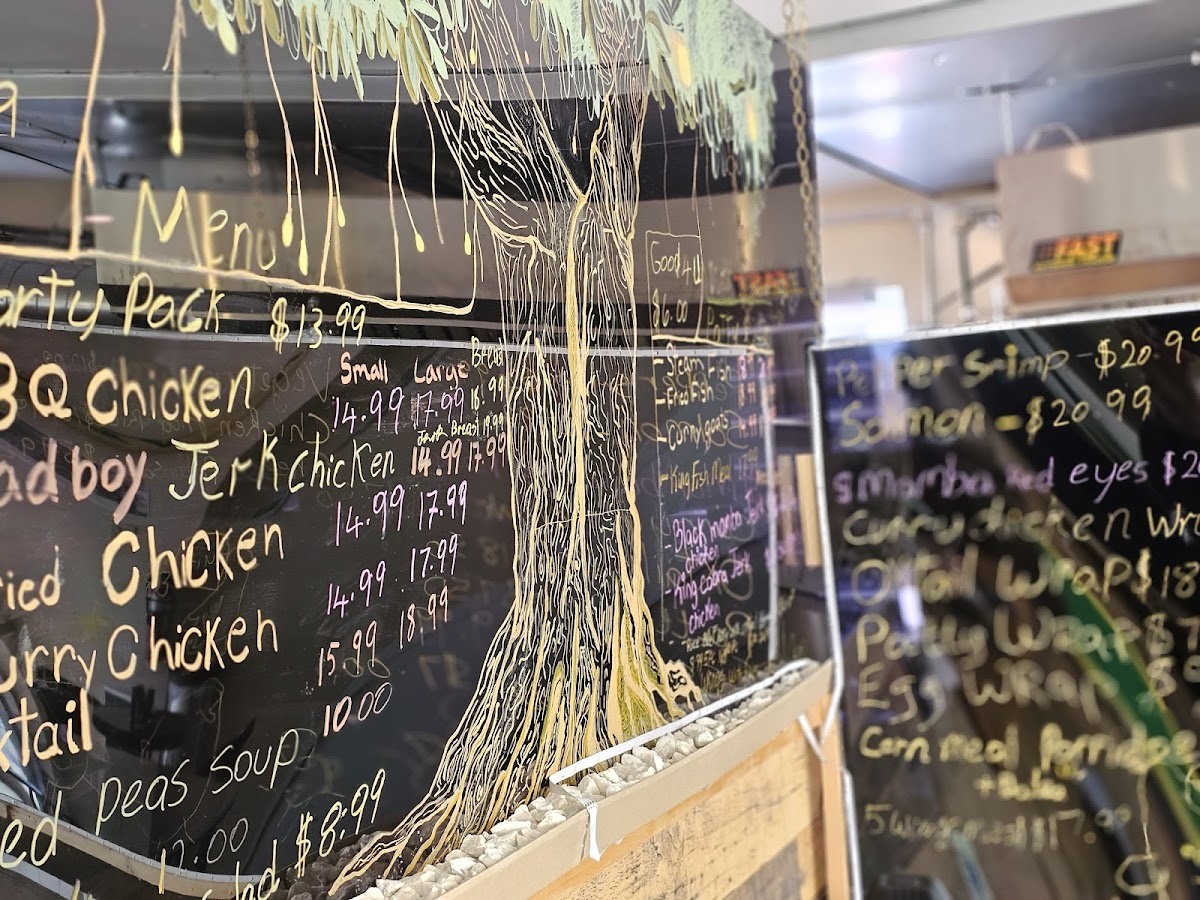 9
Menu
arty Pack $13.99
Small Large Breast
BQ Chicken 14.99 17.99 18.99
adboy Jerk chicken 14.99 17.99
ried Chicken 14.99 17.99
urry Chicken 14.99 17.99
xtail 15.99 18.99
ed peas soup 10.00
12.00
$8.99
Good 4 U
$6.00
Steam Fish
Fried Fish
Curry goat
King Fish Meal
- Black mamba Jerk
chicken
- King Cobra Jerk
chicken
FAST
Pepper Srimp - $20.99
Salmon - $20.99
Mamba Red eyes $2
Curry chicken Wr
Oxtail Wrap $18
Patty Wrap $7
Egg Wrap $
Corn meal Porridge